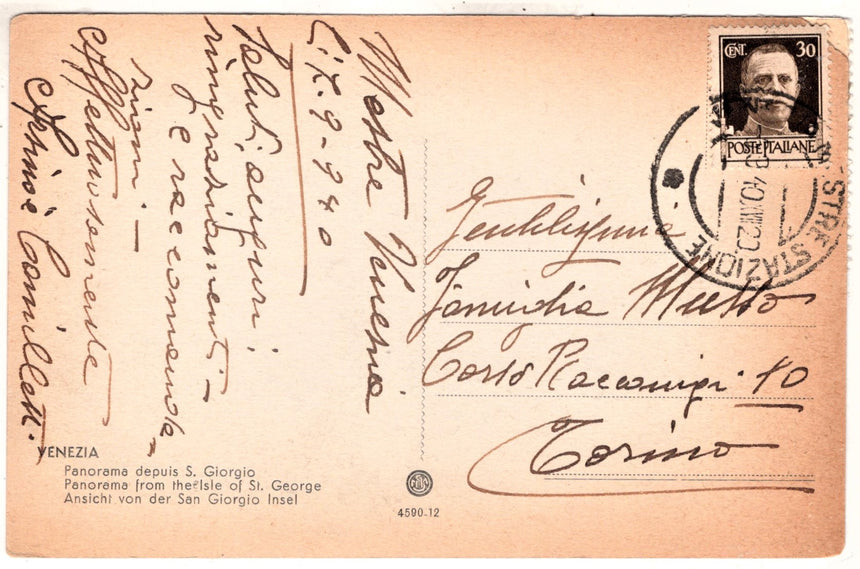 Mestre Venezia
li 7-9-940
Saluti, auguri,
ringraziamenti -
e raccomanda-
zioni -
Affettuosamente
Camilletti.
CENT. 30
POSTE ITALIANE
STRE STAZIONE
Gentilissima
Famiglia Musso
Corso Racconigi 10
Torino
VENEZIA
Panorama depuis S. Giorgio
Panorama from the Isle of St. George
Ansicht von der San Giorgio Insel
4590-12